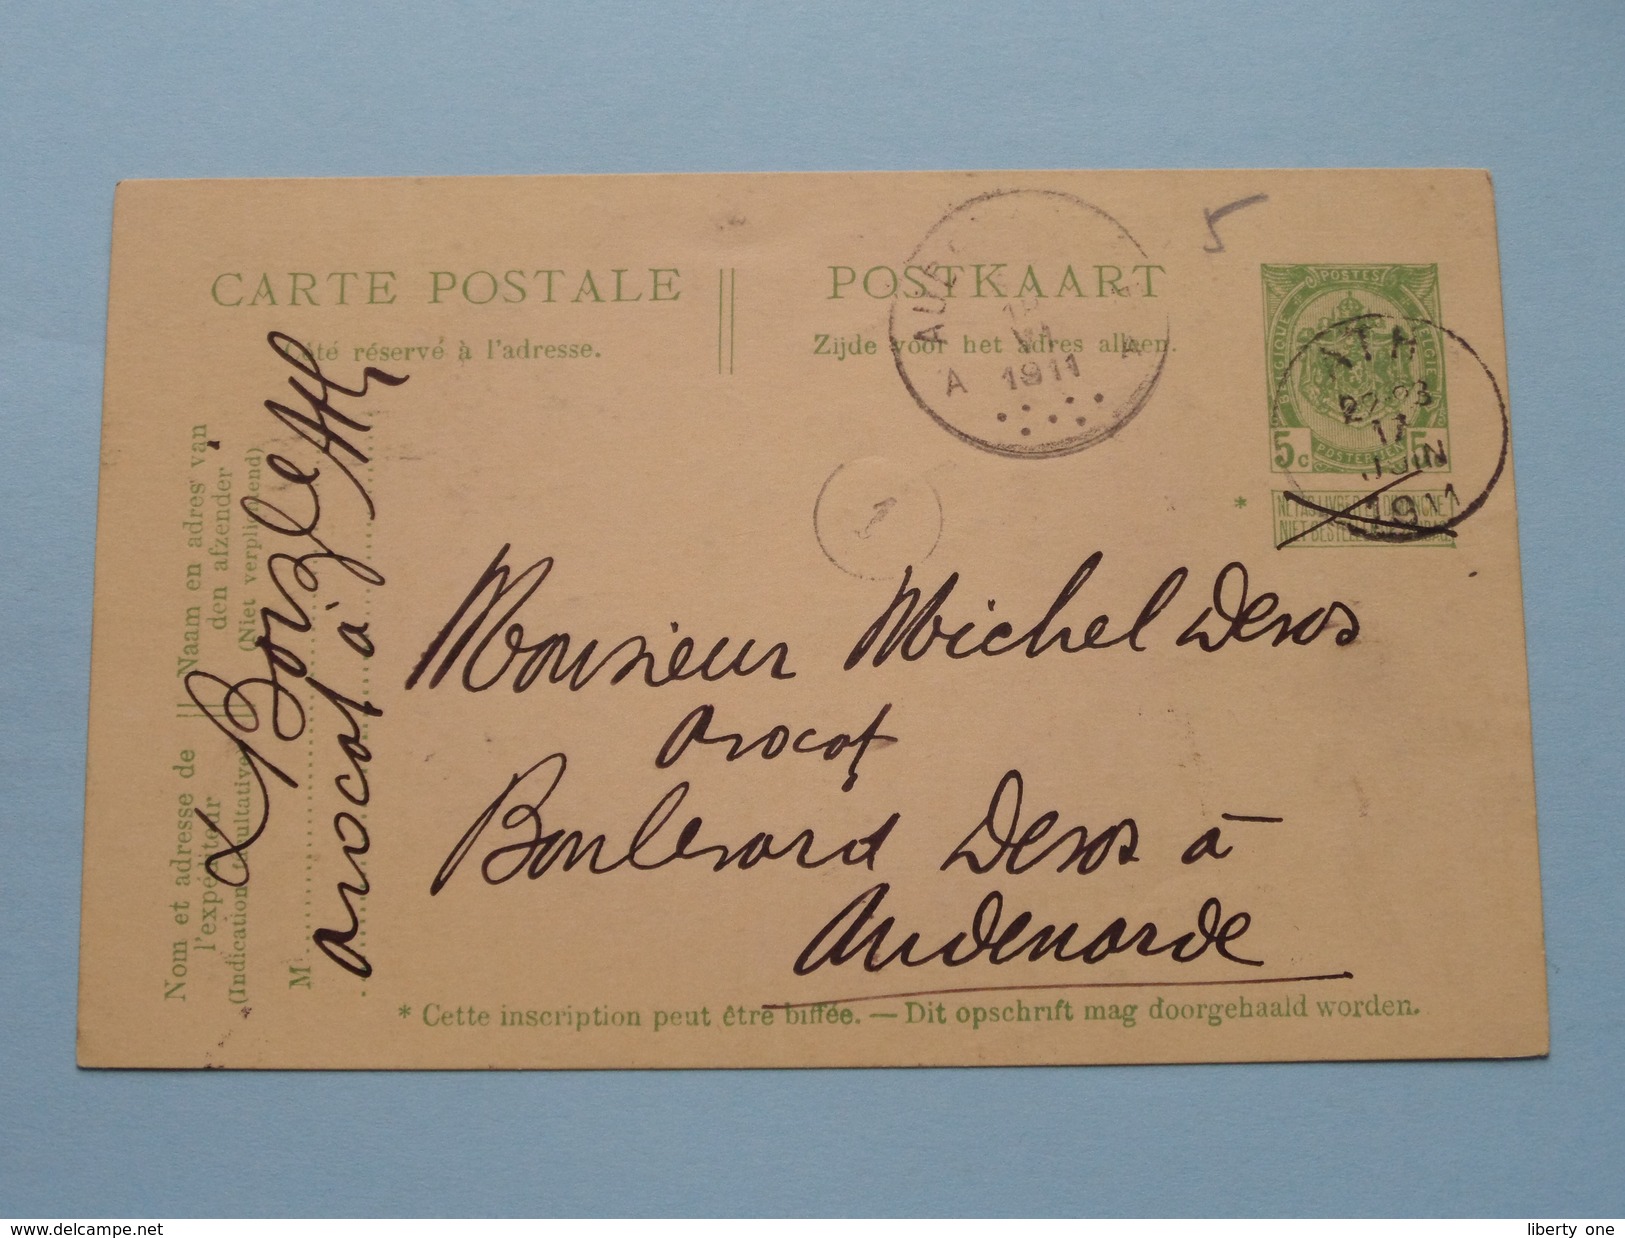 CARTE POSTALE
POSTKAART
Côté réservé à l'adresse.
Zijde voor het adres alleen.
5
A
18
VI
1911
A
POSTES
BELGIQUE
BELGIË
5c
5c
POSTERIJEN
ATH
22-23
17
JUIN
1911
*
NE PAS LIVRER LE DIMANCHE
NIET BESTELLEN OP ZONDAG
1
Nom et adresse de l'expéditeur
(Indication facultative)
Naam en adres van den afzender
(Niet verplichtend)
M
avocat à Ath
Monsieur Michel Devos
avocat
Boulevard Devos à
Audenarde
* Cette inscription peut être biffée. — Dit opschrift mag doorgehaald worden.
www.delcampe.net
liberty one